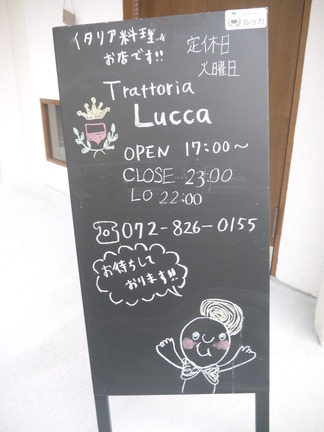 ルッカ
イタリア料理の
お店です!!
定休日
火曜日
Trattoria
Lucca
OPEN 17:00~
CLOSE 23:00
LO 22:00
☎072-826-0155
お待ちして
おります!!